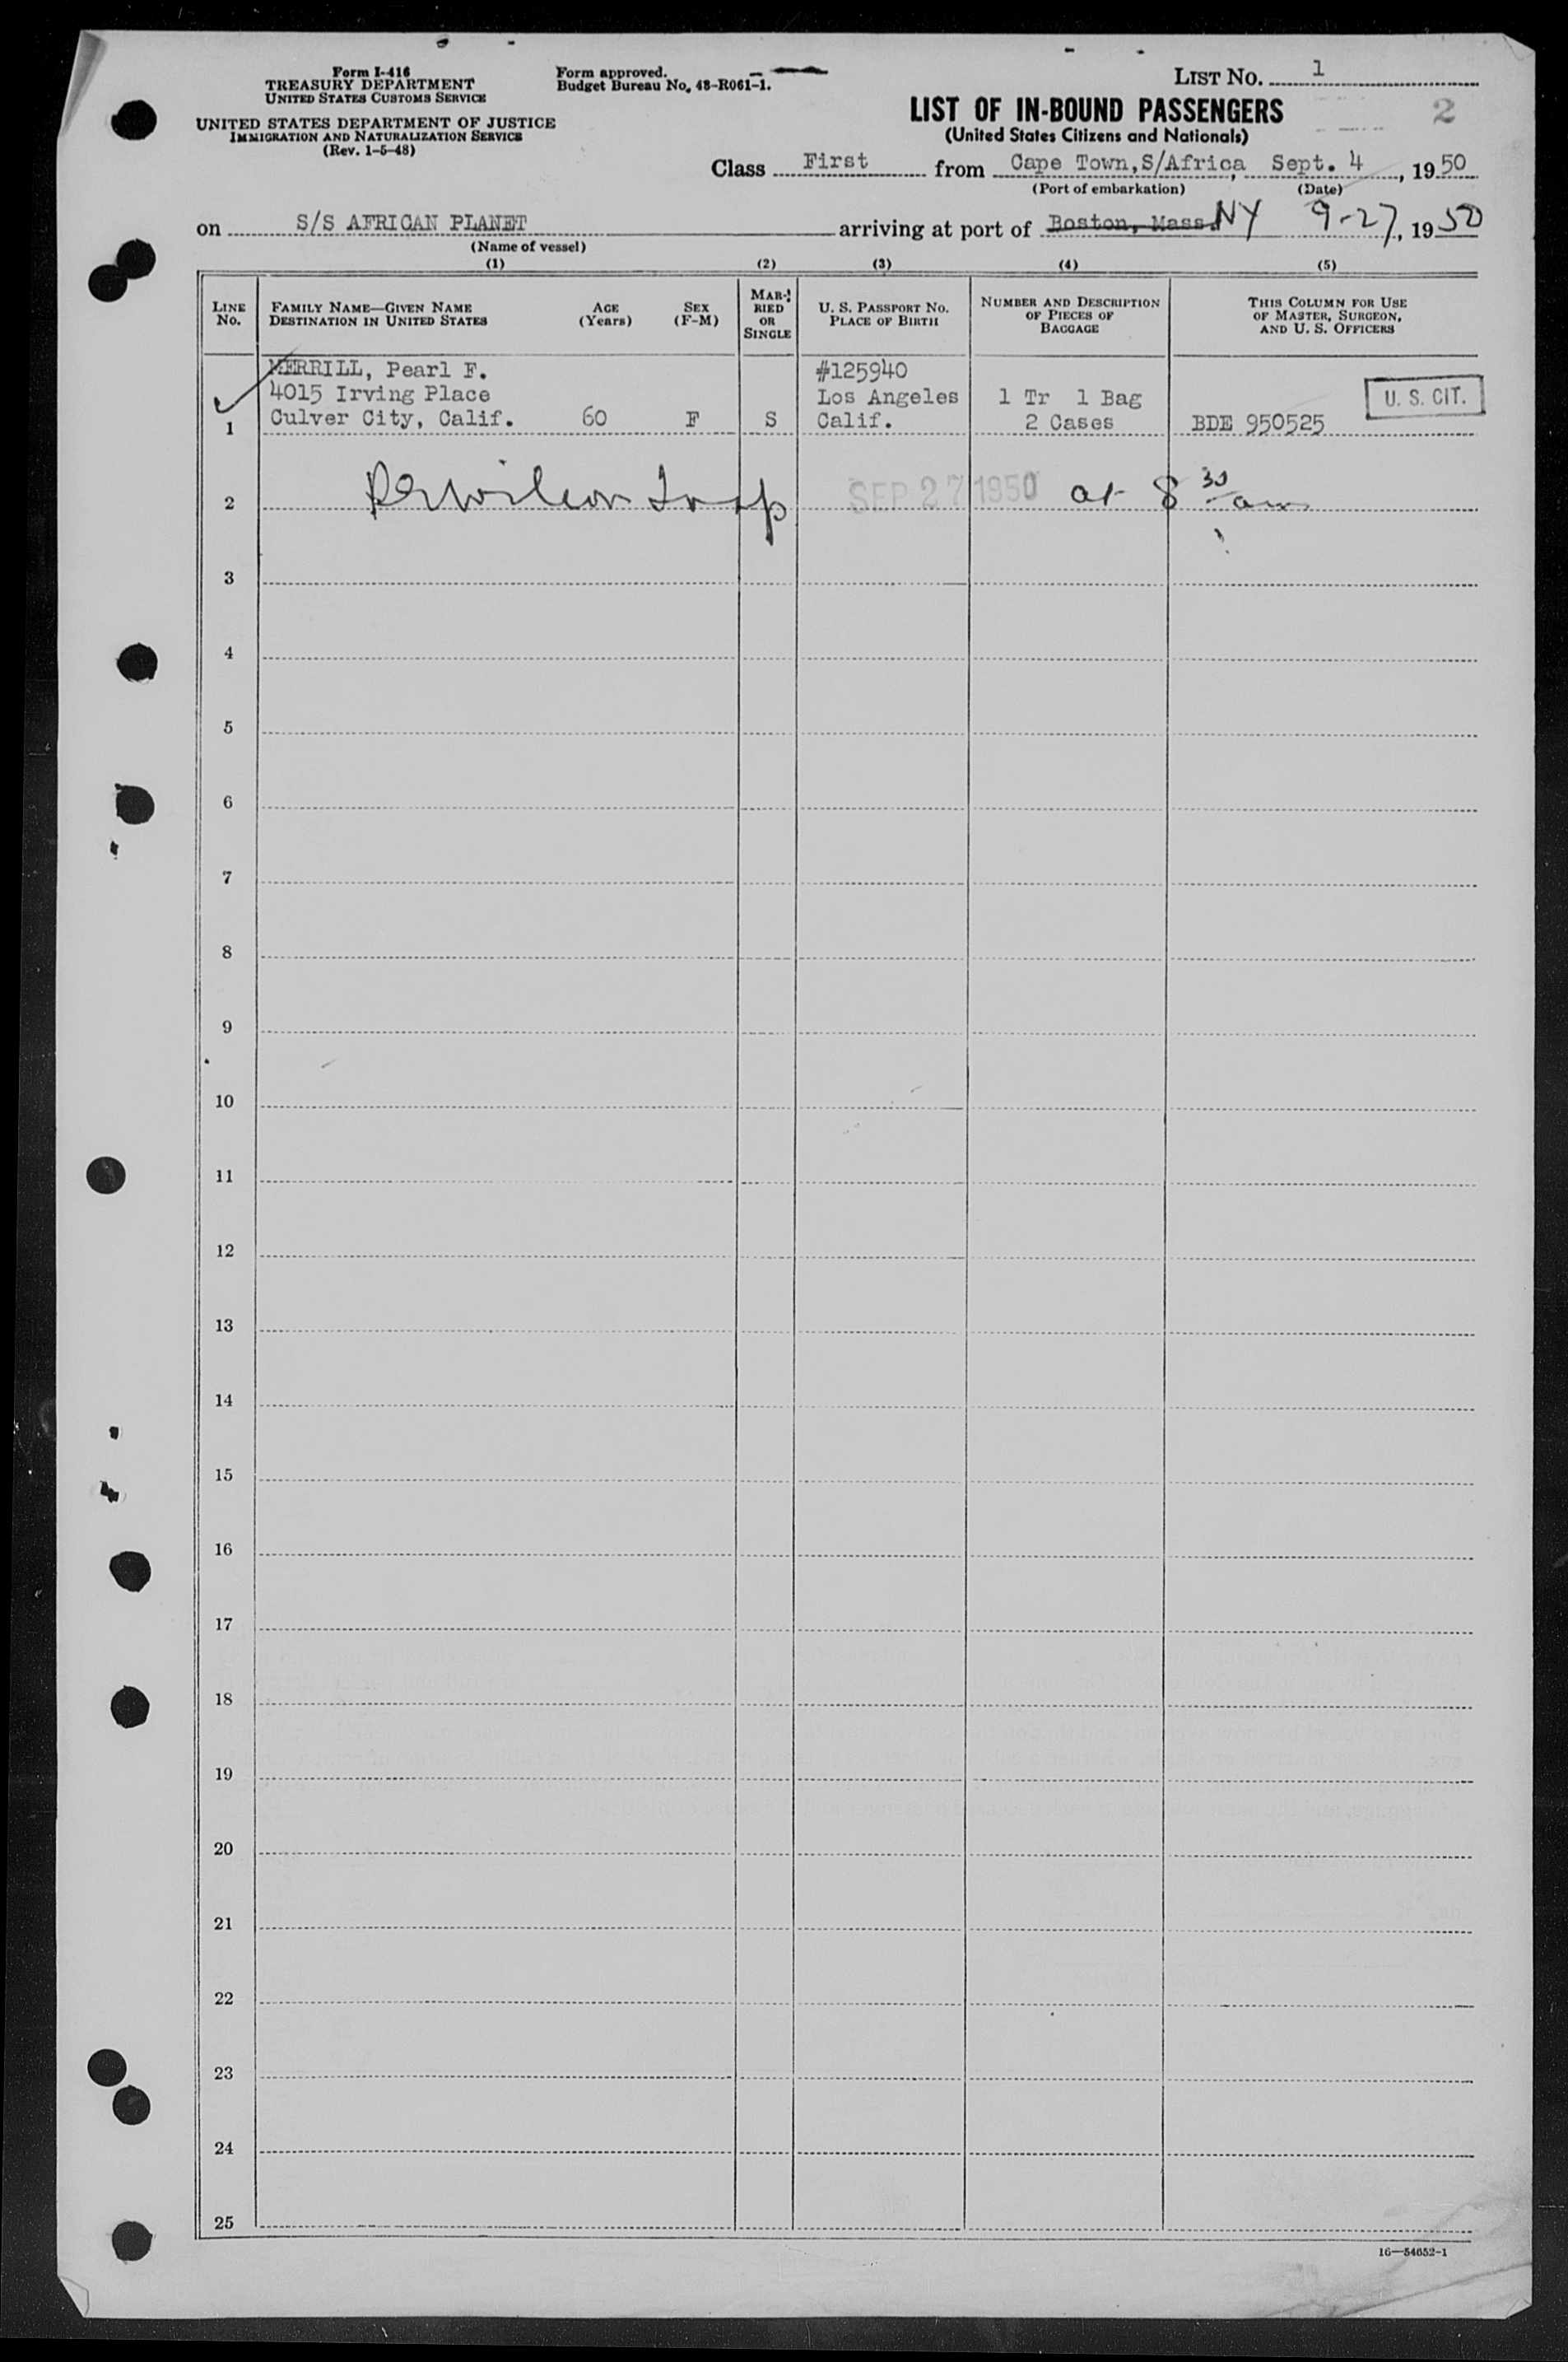 Form I-416
TREASURY DEPARTMENT
UNITED STATES CUSTOMS SERVICE
UNITED STATES DEPARTMENT OF JUSTICE
IMMIGRATION AND NATURALIZATION SERVICE
(Rev. 1-5-48)
Form approved.
Budget Bureau No. 43-R061-1.
LIST No. 1
LIST OF IN-BOUND PASSENGERS
2
(United States Citizens and Nationals)
Class First from Cape Town, S/Africa, Sept. 4, 1950
(Port of embarkation) (Date)
on S/S AFRICAN PLANET arriving at port of Boston, Mass. NY 9-27, 1950
(Name of vessel)
(1) (2) (3) (4) (5)
LINE No.
FAMILY NAME—GIVEN NAME
DESTINATION IN UNITED STATES
AGE (Years)
SEX (F-M)
MARRIED OR SINGLE
U. S. PASSPORT No.
PLACE OF BIRTH
NUMBER AND DESCRIPTION OF PIECES OF BAGGAGE
THIS COLUMN FOR USE OF MASTER, SURGEON, AND U. S. OFFICERS
MERRILL, Pearl F. #125940
4015 Irving Place Los Angeles 1 Tr 1 Bag U. S. CIT.
1 Culver City, Calif. 60 F S Calif. 2 Cases BDE 950525
2 SEP 27 1950 at 8 30 am
3
4
5
6
7
8
9
10
11
12
13
14
15
16
17
18
19
20
21
22
23
24
25
16—54652-1